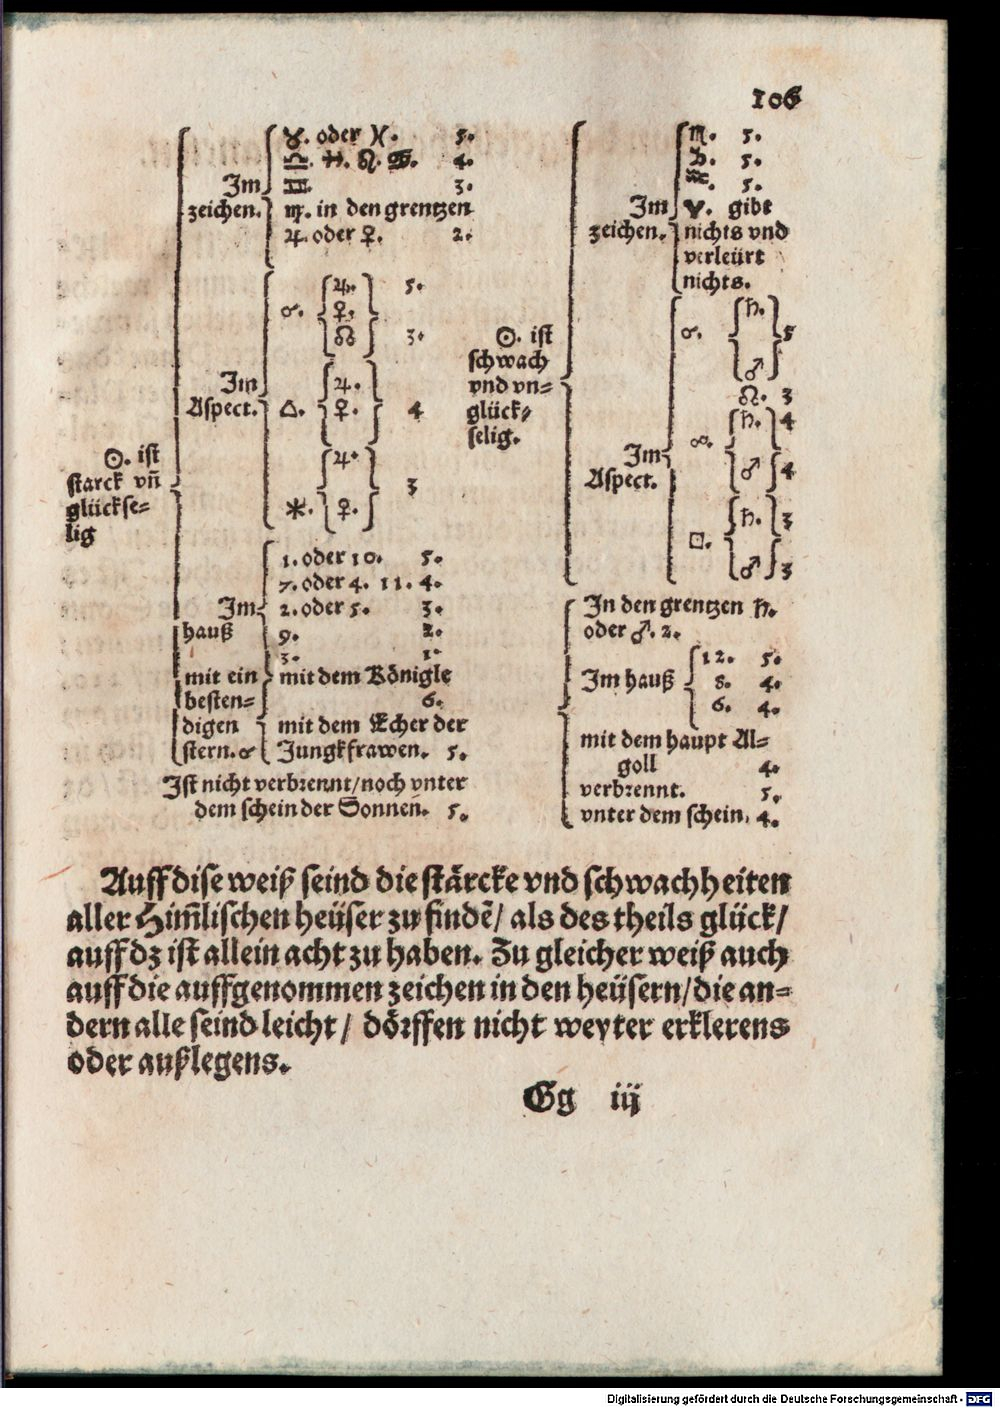 106
☉. ist
starck vñ
glückse=
lig
Im
zeichen.
♉. oder ♓. 5.
♎. ♐. ♌. ♋. 4.
♊. 3.
♍. in den grentzen
♃. oder ♀. 2.
Im
Aspect.
☌. ♃. 5.
♀.
☊ 3.
△. ♃.
♀. 4
♃.
3
⚹. ♀.
Im
hauß
1. oder 10. 5.
7. oder 4. 11. 4.
2. oder 5. 3.
9. 2.
3. 1.
mit ein
besten=
digen
stern. ☌
mit dem Königle
6.
mit dem Echer der
Jungkfrawen. 5.
Ist nicht verbrennt/noch vnter
dem schein der Sonnen. 5.
☉. ist
schwach
vnd vn=
glück=
selig.
Im
zeichen.
♏. 5.
♑. 5.
♒. 5.
♈. gibt
nichts vnd
verleürt
nichts.
Im
Aspect.
☌. ♄. 5
♂
☊. 3
☍. ♄. 4
♂ 4
□. ♄. 3
♂ 3
In den grentzen ♄.
oder ♂. 2.
Im hauß
12. 5.
8. 4.
6. 4.
mit dem haupt Al=
goll 4.
verbrennt. 5.
vnter dem schein. 4.
Auff dise weiß seind die stärcke vnd schwachheiten
aller Him̃lischen heüser zu findē/ als des theils glück/
auff dz ist allein acht zu haben. Zu gleicher weiß auch
auff die auffgenommen zeichen in den heüsern/die an=
dern alle seind leicht/ dörffen nicht weyter erklerens
oder außlegens.
Gg iij
Digitalisierung gefördert durch die Deutsche Forschungsgemeinschaft - DFG